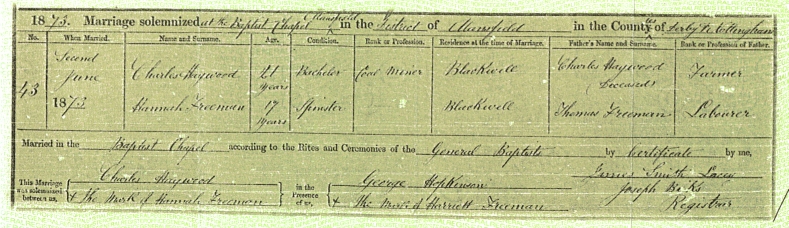 1873. Marriage solemnized at the Baptist Chapel Mansfield in the District of Mansfield in the Counties of Derby & Nottingham
No. When Married. Name and Surname. Age. Condition. Rank or Profession. Residence at the time of Marriage. Father's Name and Surname. Rank or Profession of Father.
43 Second June 1873 Charles Haywood 21 years Bachelor Coal Miner Blackwell Charles Haywood (Deceased) Farmer
Hannah Freeman 17 years Spinster — Blackwell Thomas Freeman Labourer
Married in the Baptist Chapel according to the Rites and Ceremonies of the General Baptists by Certificate by me,
This Marriage was solemnized between us, Charles Haywood in the Presence of us, George Hopkinson James Smith Lacey
X The Mark of Hannah Freeman X The Mark of Harriett Freeman Joseph
Registrar